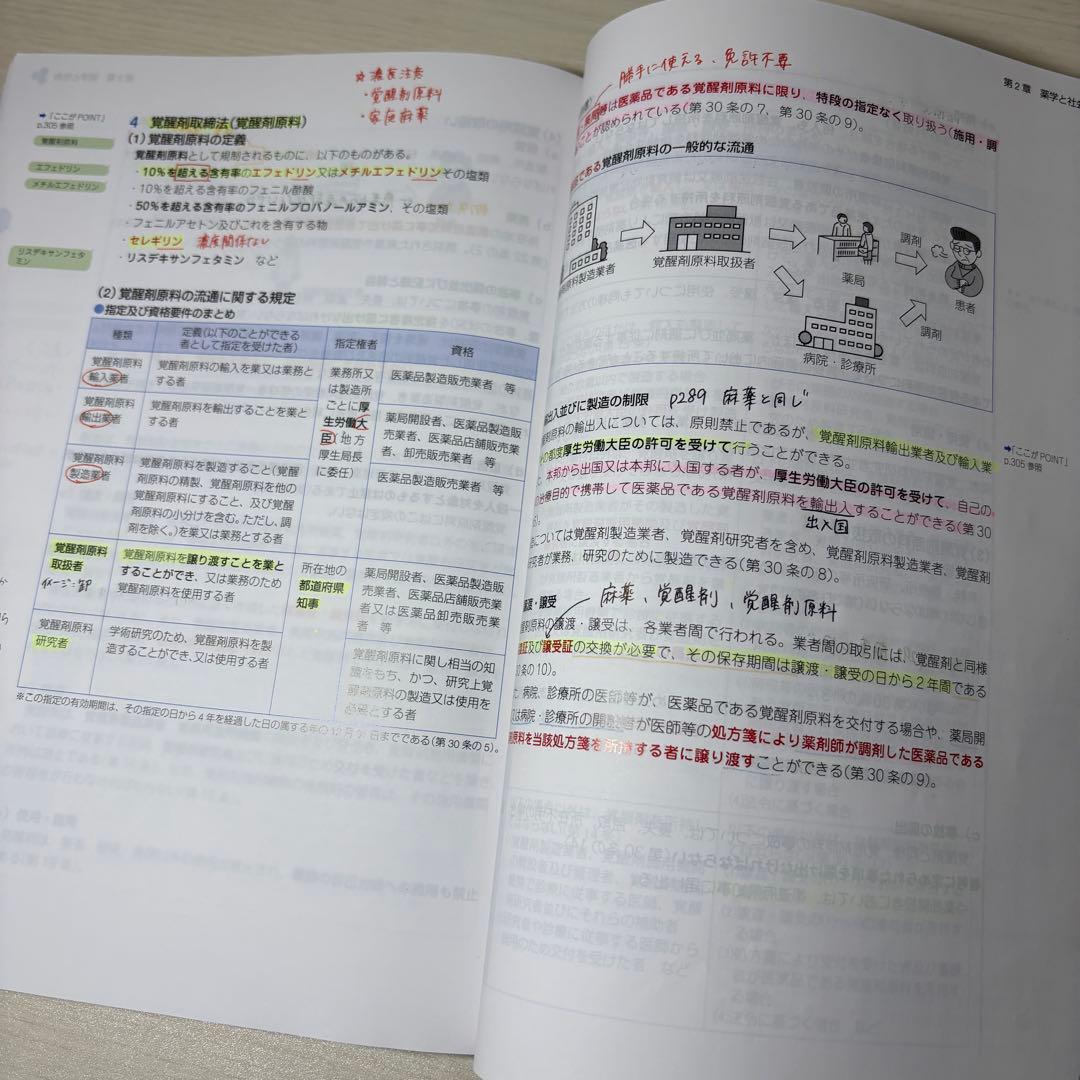 ☆濃度注意
・覚醒剤原料
・家庭麻薬
➡「ここがPOINT」
p.305 参照
覚醒剤原料
エフェドリン
メチルエフェドリン
リスデキサンフェタ
ミン
4 覚醒剤取締法(覚醒剤原料)
(1)覚醒剤原料の定義
覚醒剤原料として規制されるものに、以下のものがある。
・10%を超える含有率のエフェドリン又はメチルエフェドリンその塩類
・10%を超える含有率のフェニル酢酸
・50%を超える含有率のフェニルプロパノールアミン、その塩類
・フェニルアセトン及びこれを含有する物
・セレギリン 濃度関係ない
・リスデキサンフェタミン など
(2)覚醒剤原料の流通に関する規定
●指定及び資格要件のまとめ
種類
定義(以下のことができる
者として指定を受けた者)
指定権者
資格
覚醒剤原料
輸入業者
覚醒剤原料の輸入を業又は業務と
する者
業務所又
は製造所
ごとに厚
生労働大
臣(地方
厚生局長
に委任)
医薬品製造販売業者 等
覚醒剤原料
輸出業者
覚醒剤原料を輸出することを業と
する者
薬局開設者、医薬品製造販
売業者、医薬品店舗販売
業者、卸売販売業者 等
覚醒剤原料
製造業者
覚醒剤原料を製造すること(覚醒
剤原料の精製、覚醒剤原料を他の
覚醒剤原料にすること、及び覚醒
剤原料の小分けを含む。ただし、調
剤を除く。)を業又は業務とする者
医薬品製造販売業者 等
覚醒剤原料
取扱者
イメージ:卸
覚醒剤原料を譲り渡すことを業と
することができ、又は業務のため
覚醒剤原料を使用する者
所在地の
都道府県
知事
薬局開設者、医薬品製造販
売業者、医薬品店舗販売業
者又は医薬品卸売販売業
者 等
覚醒剤原料
研究者
学術研究のため、覚醒剤原料を製
造することができ、又は使用する者
覚醒剤原料に関し相当の知
識をもち、かつ、研究上覚
醒剤原料の製造又は使用を
必要とする者
※この指定の有効期間は、その指定の日から4年を経過した日の属する年の12月31日までである(第30条の5)。
勝手に使える、免許不要
第2章 薬学と社会
は医薬品である覚醒剤原料に限り、特段の指定なく取り扱う(施用・調
ことが認められている(第30条の7、第30条の9)。
である覚醒剤原料の一般的な流通
原料製造業者
覚醒剤原料取扱者
薬局
調剤
患者
病院・診療所
調剤
出入並びに製造の制限 p289 麻薬と同じ
剤原料の輸出入については、原則禁止であるが、覚醒剤原料輸出業者及び輸入業
の都度厚生労働大臣の許可を受けて行うことができる。
本邦から出国又は本邦に入国する者が、厚生労働大臣の許可を受けて、自己の
治療目的で携帯して医薬品である覚醒剤原料を輸出入することができる(第30
出入国
については覚醒剤製造業者、覚醒剤研究者を含め、覚醒剤原料製造業者、覚醒剤
究者が業務、研究のために製造できる(第30条の8)。
➡「ここがPOINT」
p.305 参照
譲渡・譲受
麻薬、覚醒剤、覚醒剤原料
剤原料の譲渡・譲受は、各業者間で行われる。業者間の取引には、覚醒剤と同様
証及び譲受証の交換が必要で、その保存期間は譲渡・譲受の日から2年間である
条の10)。
病院・診療所の医師等が、医薬品である覚醒剤原料を交付する場合や、薬局開
又は病院・診療所の開設者が医師等の処方箋により薬剤師が調剤した医薬品である
原料を当該処方箋を所持する者に譲り渡すことができる(第30条の9)。